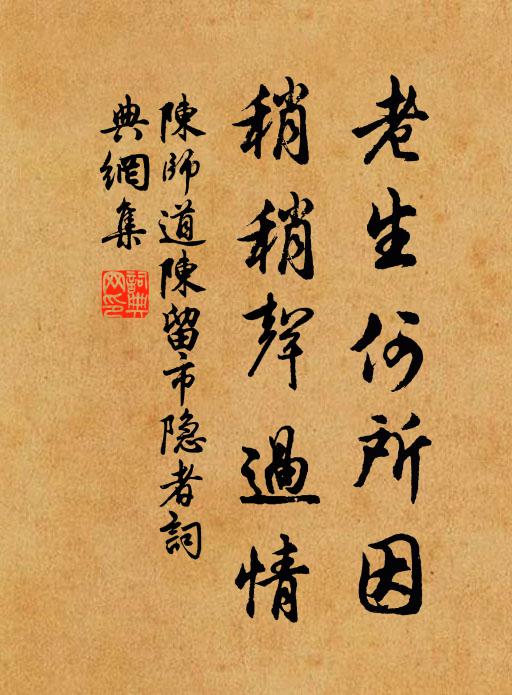 老生何所因
稍稍聲過情
陳師道陳留市隐者詞
典網集
詞典
网印